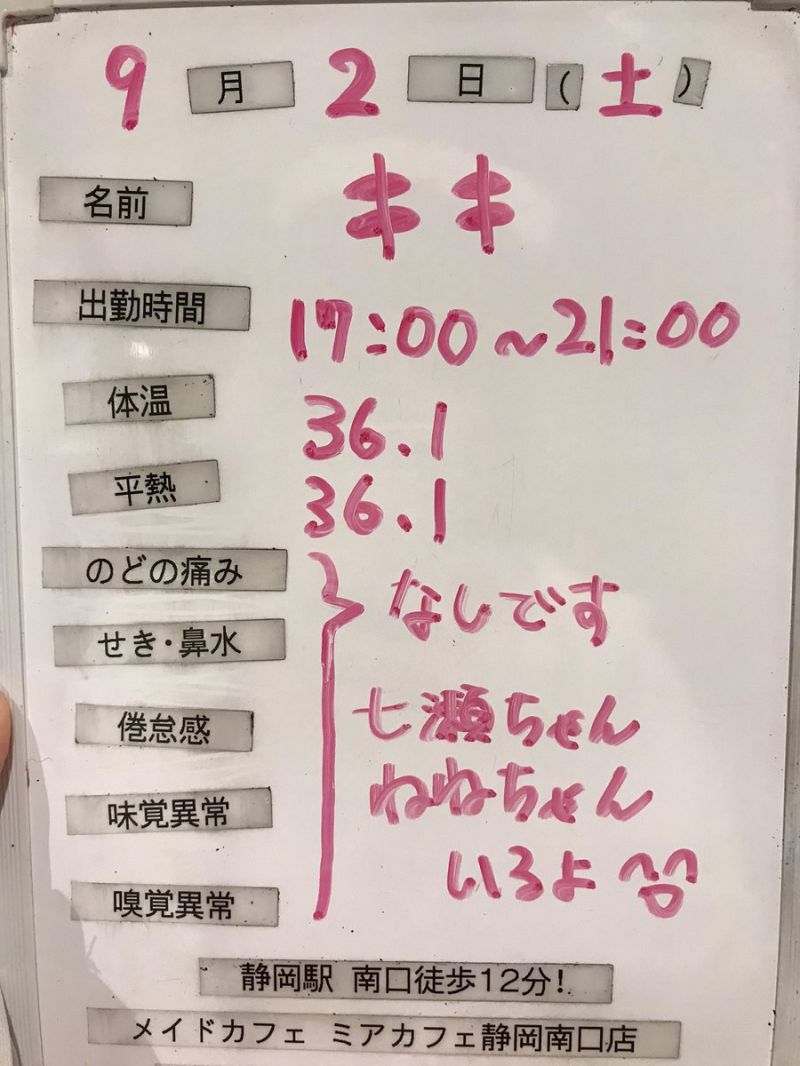 9月2日(土)
名前 キキ
出勤時間 17:00~21:00
体温 36.1
平熱 36.1
のどの痛み
なしです
せき・鼻水
倦怠感 七瀬ちゃん
味覚異常 ねねちゃん
嗅覚異常 いるよ
静岡駅 南口徒歩12分!
メイドカフェ ミアカフェ静岡南口店